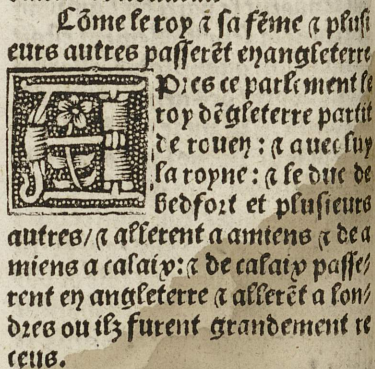 Cõme le roy & sa fẽme & plusi
eurs autres passerẽt en angleterre
APres ce parlement le
roy dẽgleterre partit
de rouen: & auec luy
la royne: & le duc de
Bedfort et plusieurs
autres/ & allerent a amiens & de a
miens a calaix: & de calaix passe/
rent en angleterre & allerẽt a lon/
dres ou ilz furent grandement re
ceus.